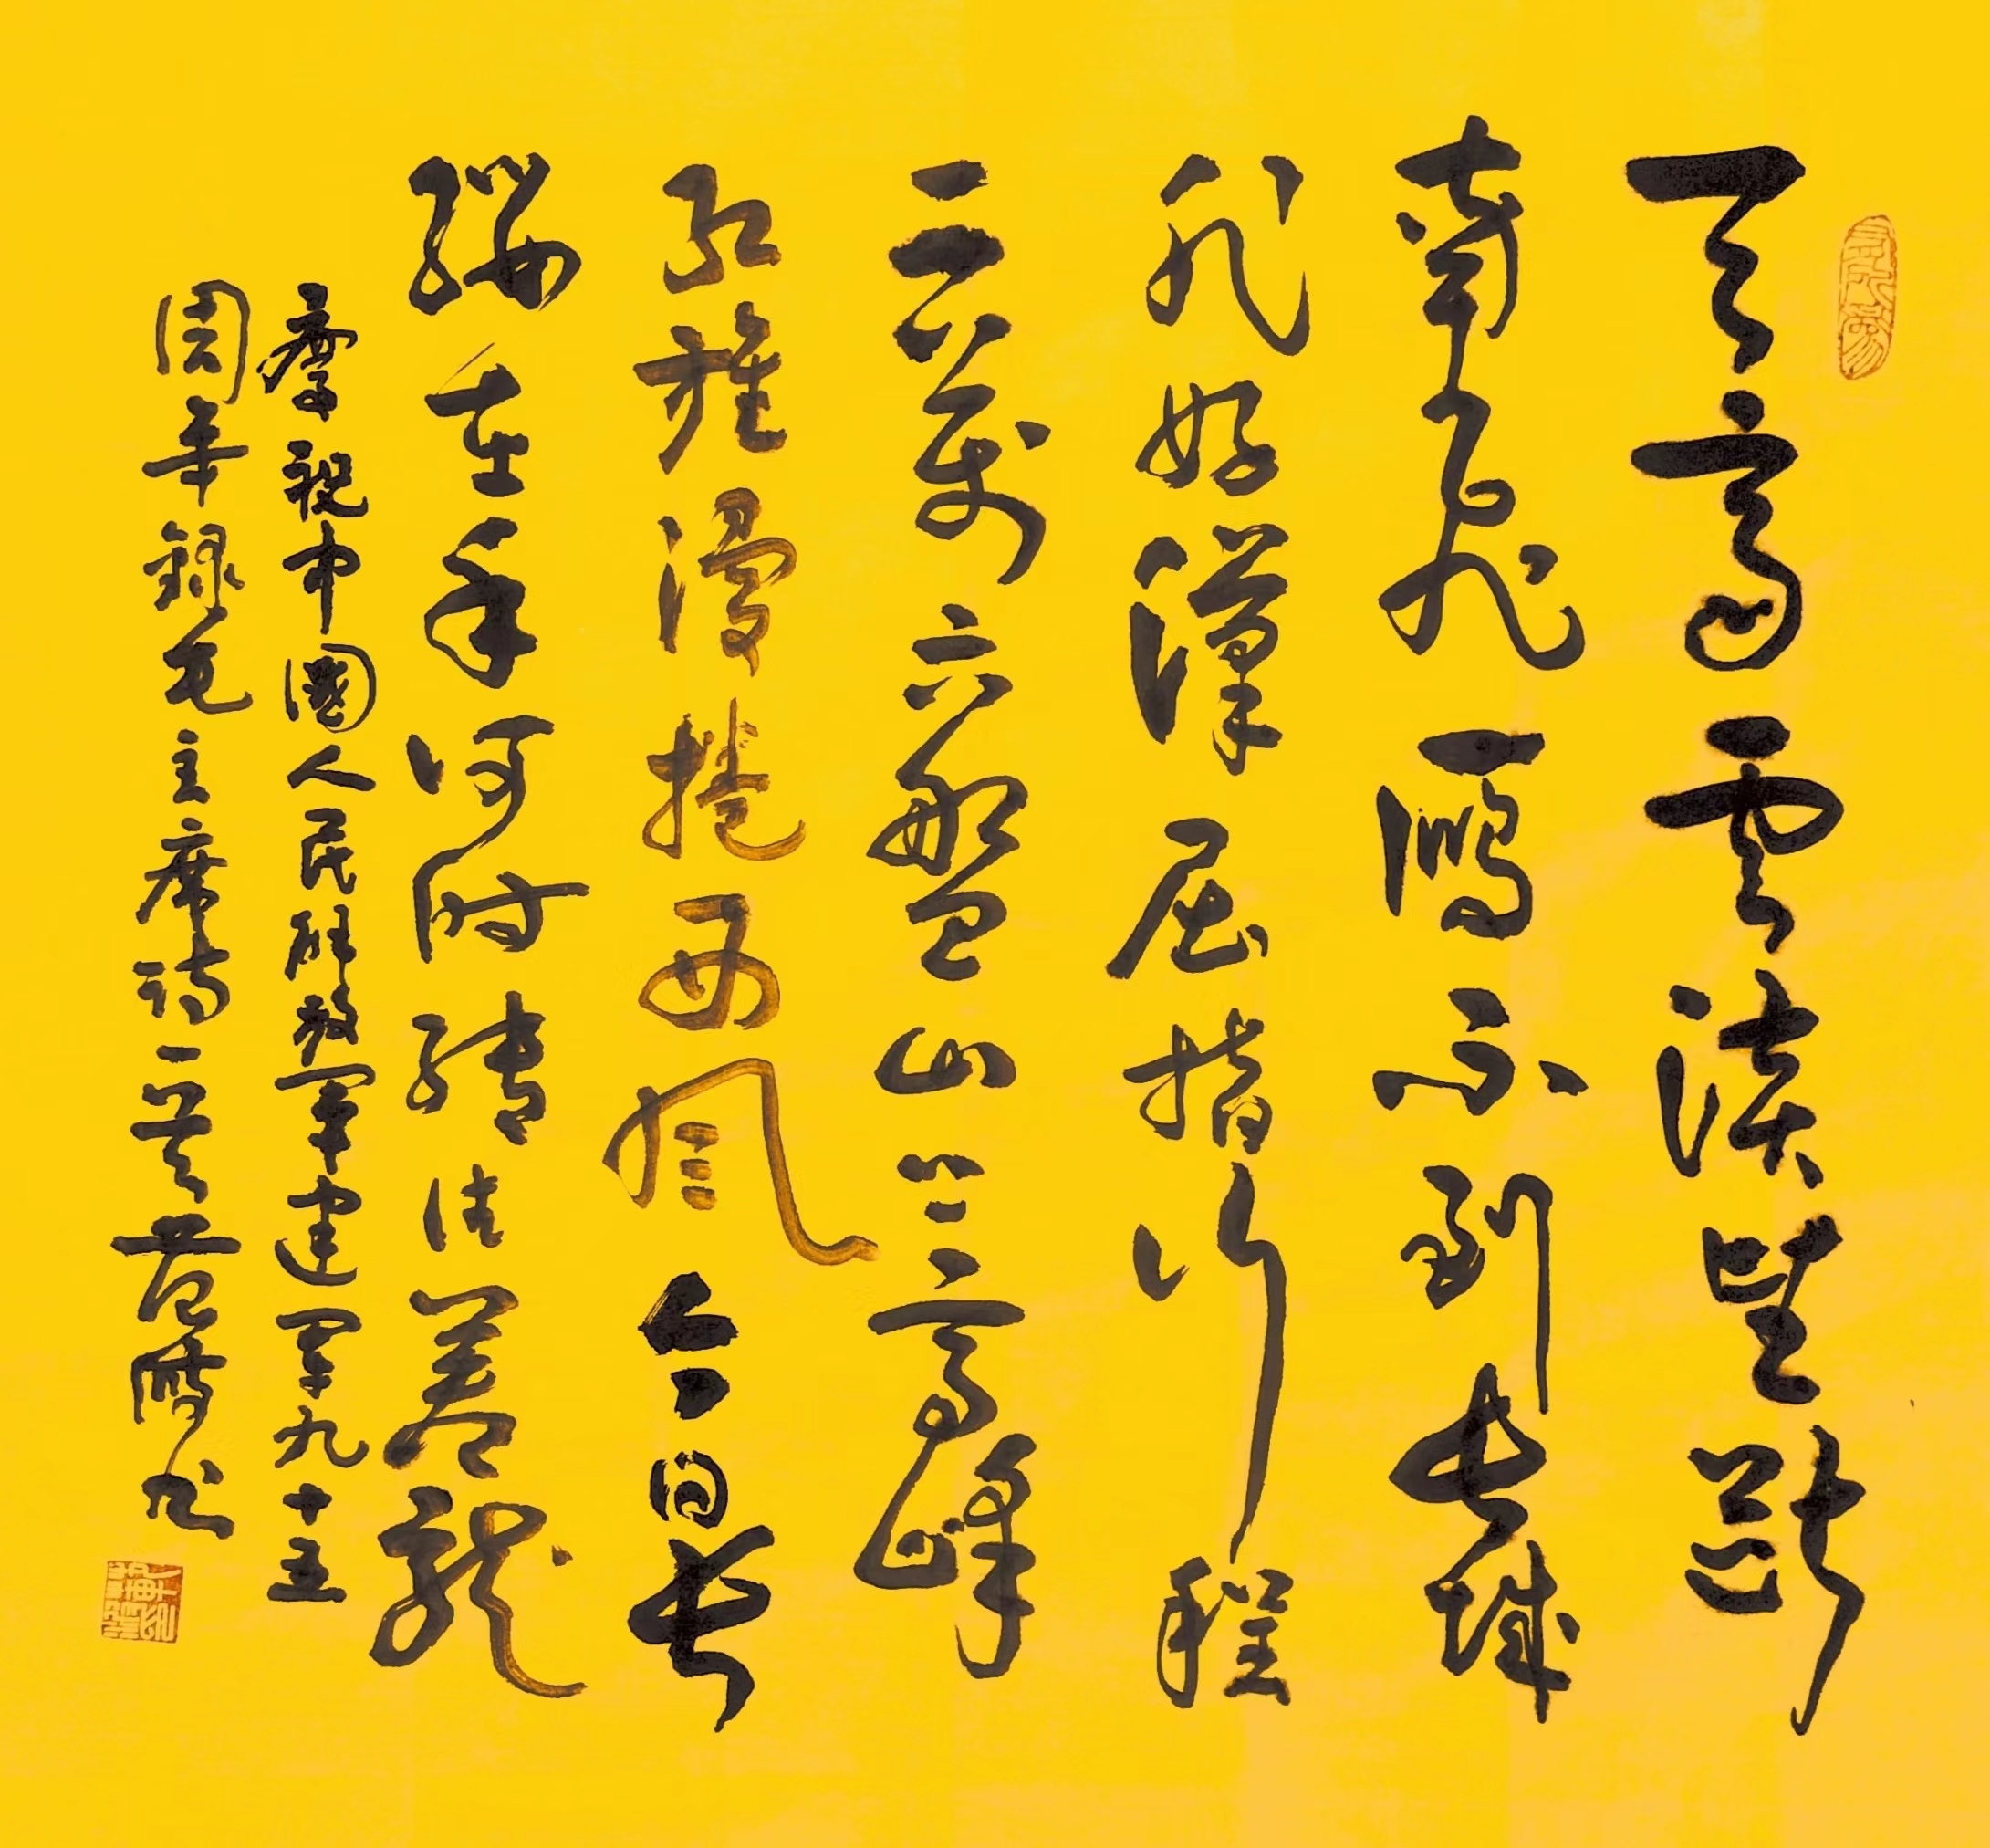 天高雲淡望斷
南飛鴈不到長城
非好漢屈指行程
二萬六盤山上高峰
紅旗漫捲西風今日長
纓在手何時縛住蒼龍
慶祝中國人民解放軍建軍九十五
周年錄毛主席詩一首范书